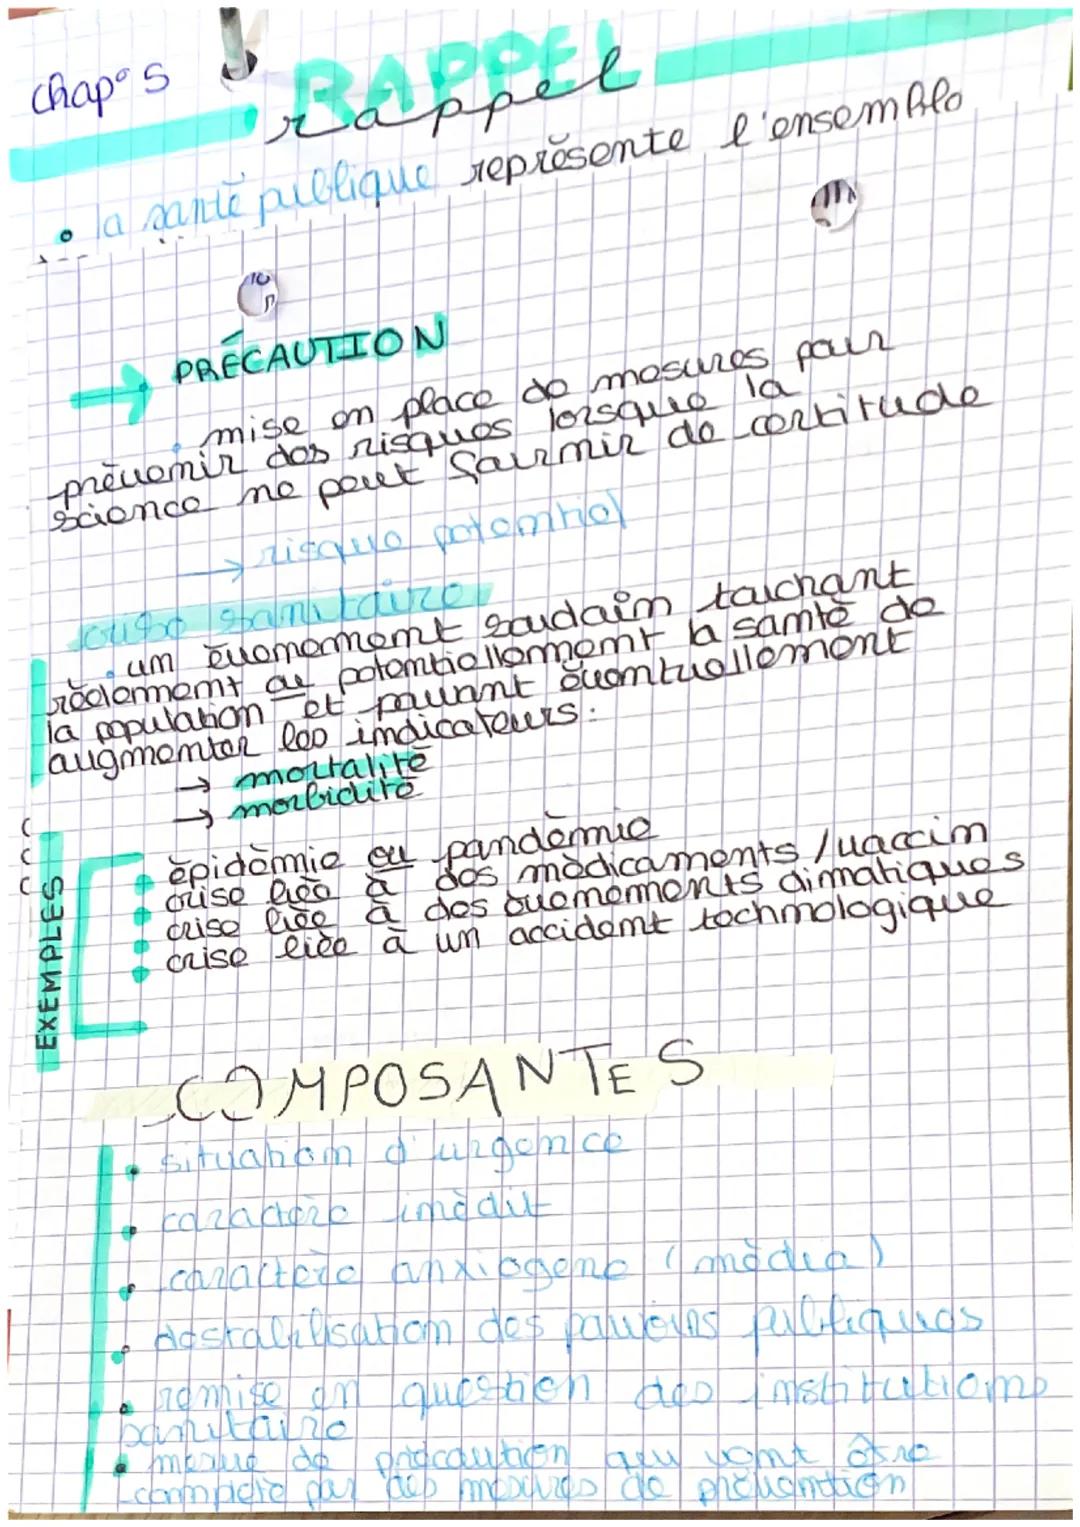 chap° 5
RAPPEL
rappel
• la santé publique représente l'ensemble
→ PRÉCAUTION
• mise en place de mesures pour
prévenir des risques lorsque la
science ne peut fournir de certitude
→ risque potentiel
crise sanitaire
• un évenement soudain touchant
réelement ou potentiellement la santé de
la population et pouvant éventuellement
augmenter les indicateurs :
→ mortalité
→ morbidité
EXEMPLES
• épidémie ou pandémie
• crise liée à des médicaments / vaccin
• crise liée à des évenements climatiques
• crise liée à un accident technologique
COMPOSANTES
• situation d'urgence
• caractère inédit
• caractère anxiogene (média)
• destabilisation des pouvoirs publiques
• remise en question des institutions
sanitaire
• de précaution qui vont être
compléte par des mesures de prévention